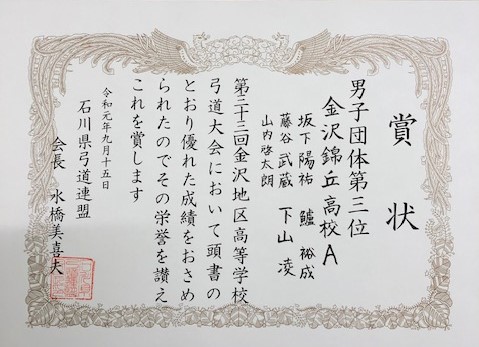 賞状
男子団体第三位
金沢錦丘高校A
坂下陽祐 鱸裕成
藤谷武蔵 下山凌
山内啓太朗
第三十三回金沢地区高等学校
弓道大会において頭書の
とおり優れた成績をおさめ
られたのでその栄誉を讃え
これを賞します
令和元年九月十五日
石川県弓道連盟
会長 水橋美喜夫